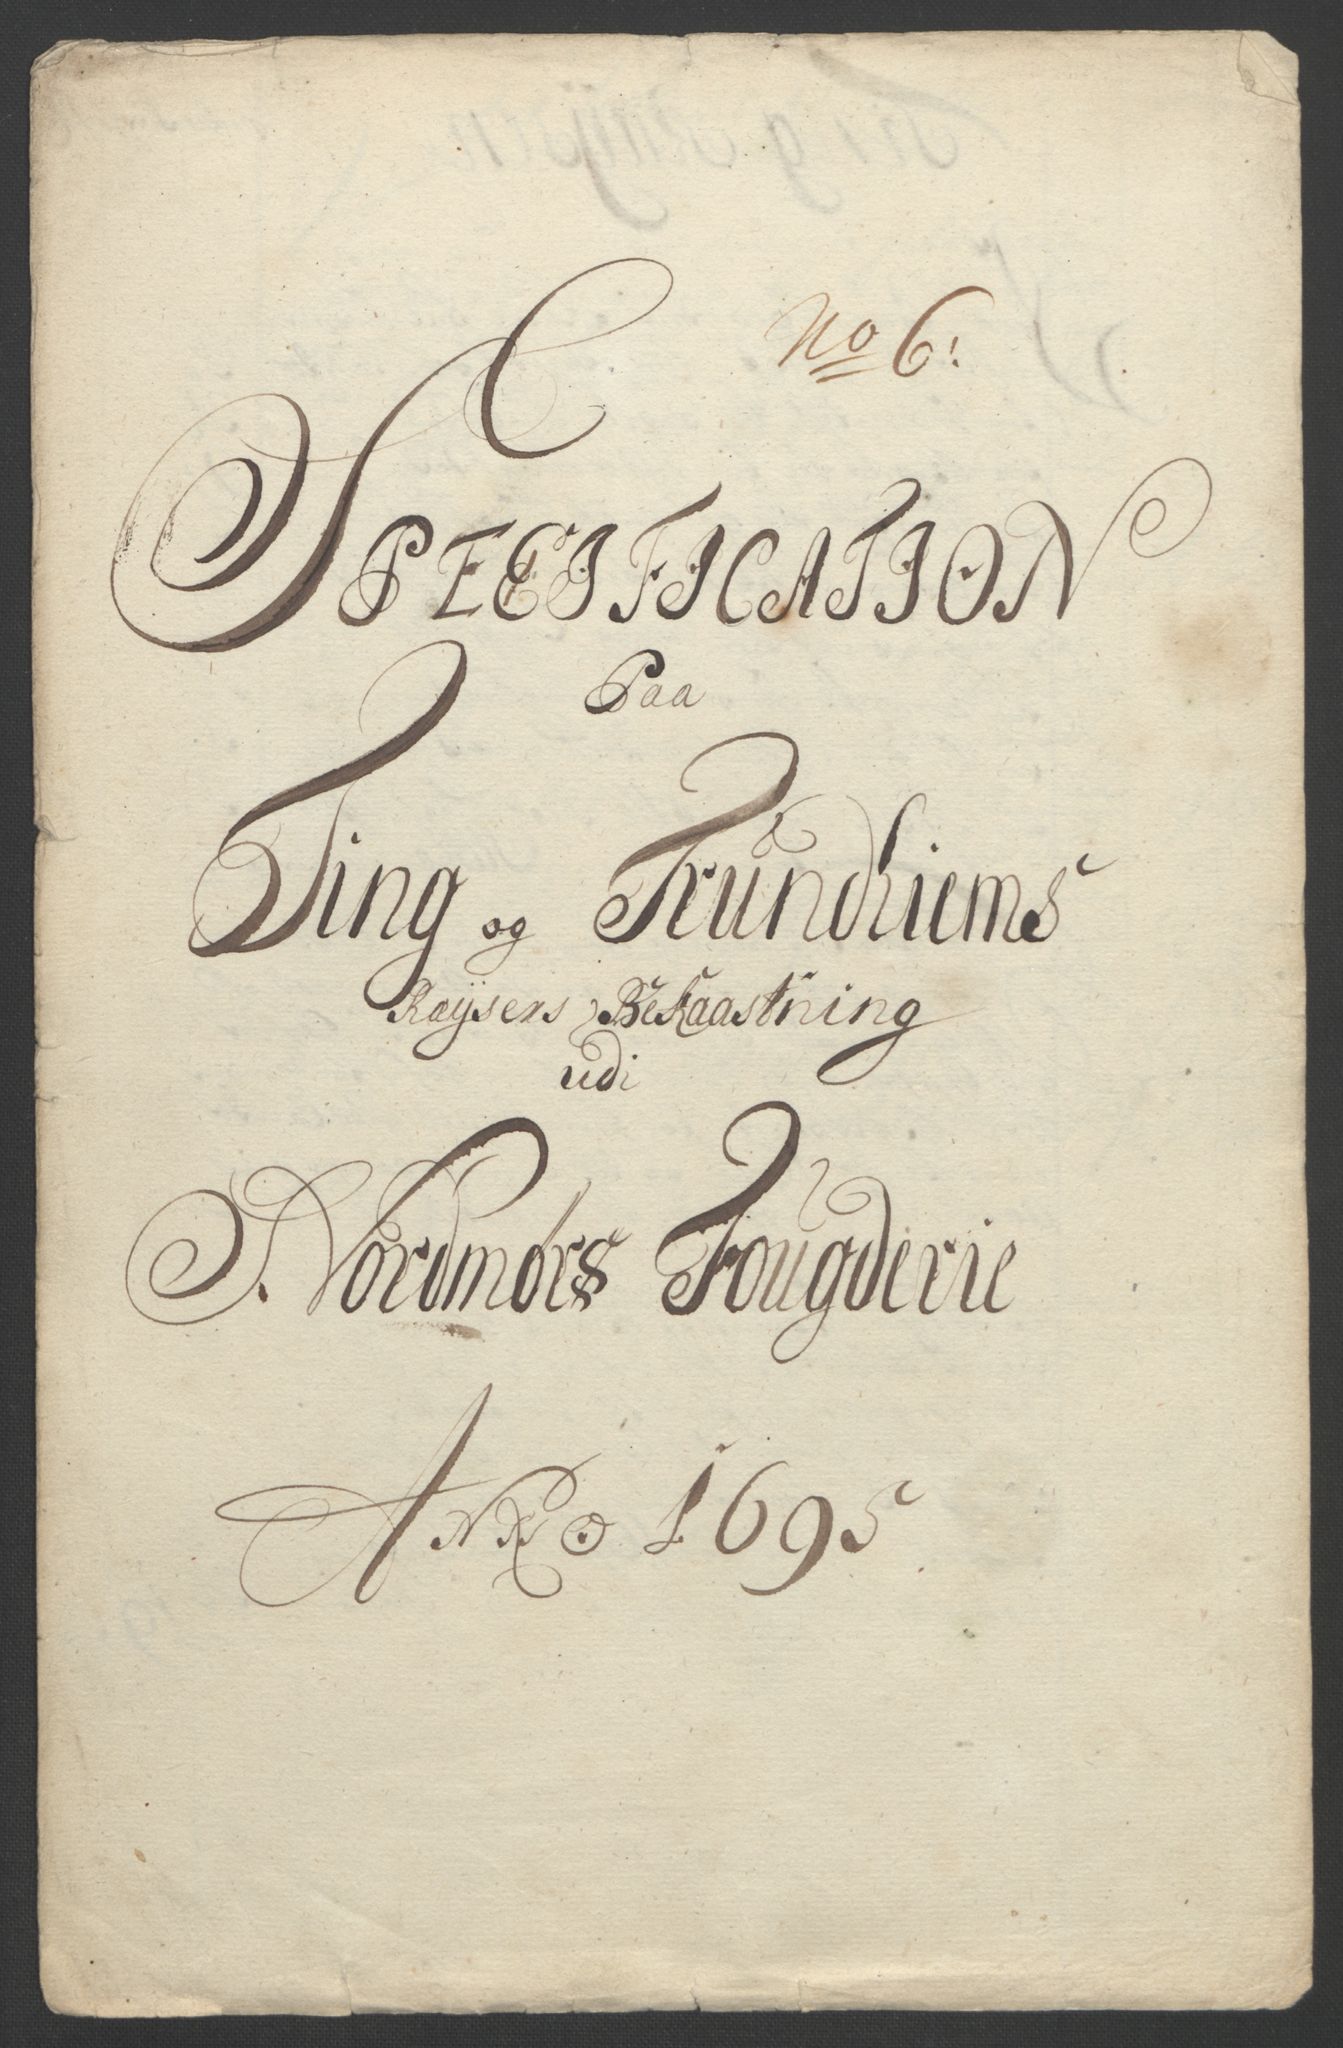 No 6:
SPECIFICATION
Paa
Ting og Trundhiems
Raÿsers Bekaastning
udi
Nordmørs Fougderie
ANNO 1695